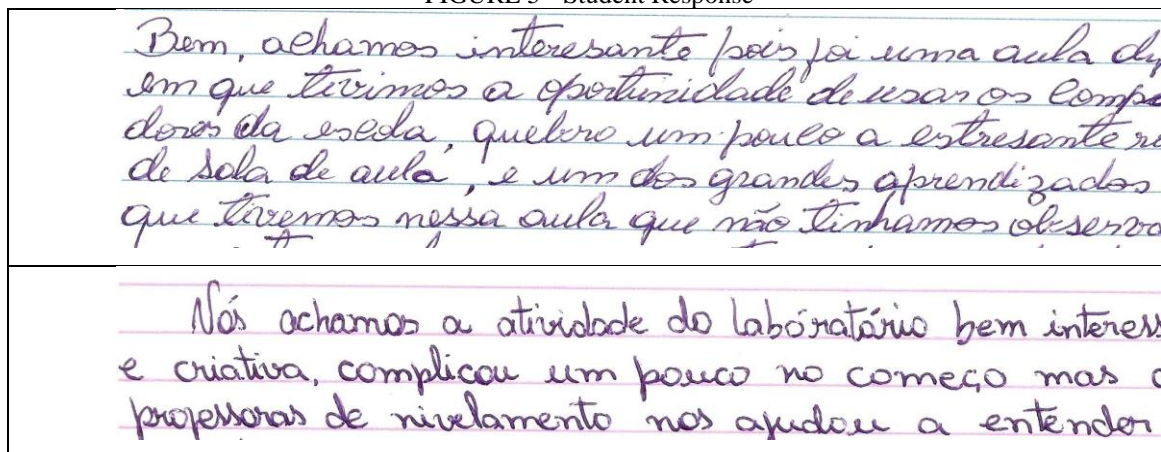 FIGURE 3 - Student Response
Bem, achamos interesante pois foi uma aula
em que tivimos a oportunidade de usar os Comp
dores da escola, quebro um pouco a estresante
de sala de aula, e um dos grandes aprendizados
que tivemos nessa aula que não tinhamos observa
Nós achamos a atividade do labóratário bem interess
e criativa, complicou um pouco no começo mas
professoras de nivelamento nos ajudou a entender